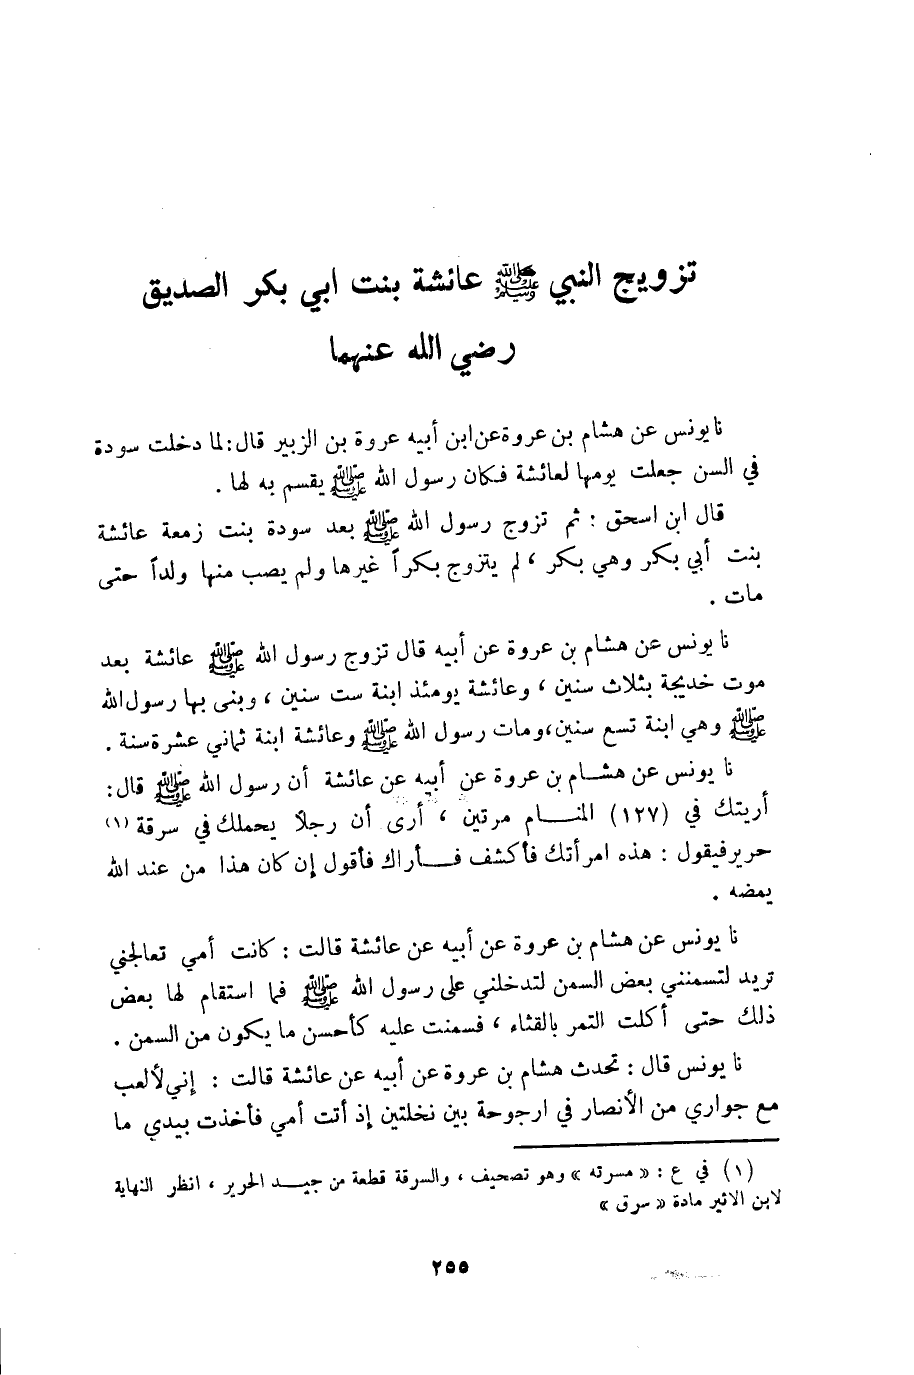 تزويج النبي ﷺ عائشة بنت ابي بكر الصديق
رضي الله عنهما
نا يونس عن هشام بن عروة عن ابن أبيه عروة بن الزبير قال : لما دخلت سودة
في السن جعلت يومها لعائشة فكان رسول الله ﷺ يقسم به لها .
قال ابن اسحق : ثم تزوج رسول الله ﷺ بعد سودة بنت زمعة عائشة
بنت أبي بكر وهي بكر ، لم يتزوج بكراً غيرها ولم يصب منها ولداً حتى
مات .
نا يونس عن هشام بن عروة عن أبيه قال تزوج رسول الله ﷺ عائشة بعد
موت خديجة بثلاث سنين ، وعائشة يومئذ ابنة ست سنين ، وبنى بها رسول الله
ﷺ وهي ابنة تسع سنين ، ومات رسول الله ﷺ وعائشة ابنة ثماني عشرة سنة .
نا يونس عن هشام بن عروة عن أبيه عن عائشة أن رسول الله ﷺ قال :
أريتك في (١٢٧) المنام مرتين ، أرى أن رجلاً يحملك في سرقة (١)
حرير فيقول : هذه امرأتك فأكشف فأراك فأقول إن كان هذا من عند الله
يمضه .
نا يونس عن هشام بن عروة عن أبيه عن عائشة قالت : كانت أمي تعالجني
تريد لتسمنني بعض السمن لتدخلني على رسول الله ﷺ فما استقام لها بعض
ذلك حتى أكلت التمر بالقثاء ، فسمنت عليه كأحسن ما يكون من السمن .
نا يونس قال : تحدث هشام بن عروة عن أبيه عن عائشة قالت : إني لألعب
مع جواري من الأنصار في ارجوحة بين نخلتين إذ أتت أمي فأخذت بيدي ما
(١) في ع : « مسرته » وهو تصحيف ، والسرقة قطعة من جيد الحرير ، انظر النهاية
لابن الاثير مادة « سرق »
٢٥٥